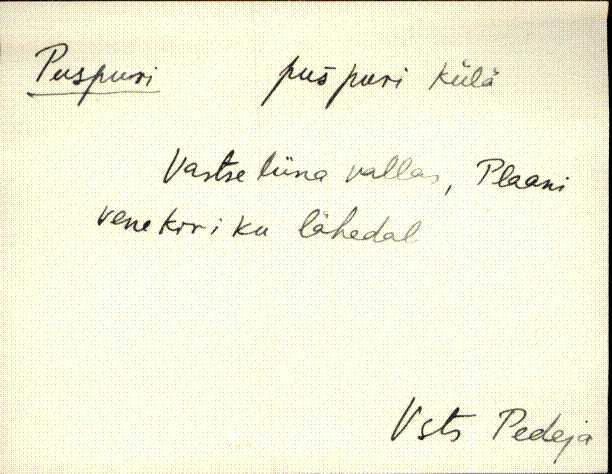 Puspuri puśpuri külä
Vastseliina vallas, Plaani
venekiriku lähedal
Vsts Pedeja